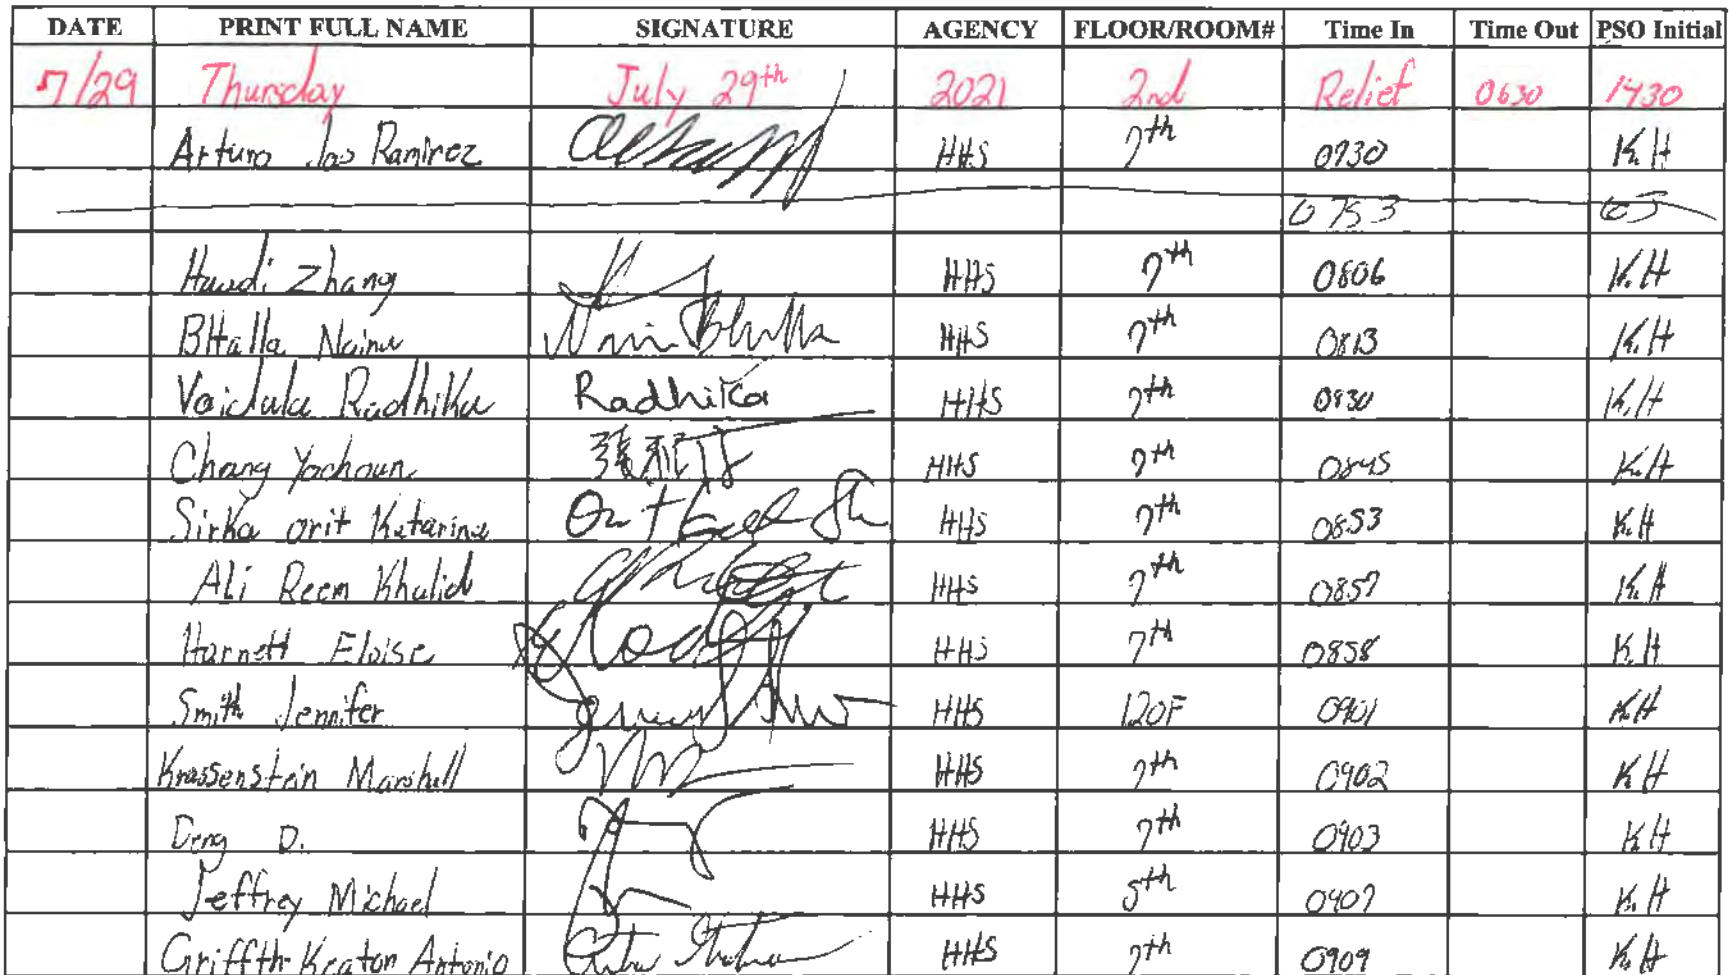 DATE PRINT FULL NAME SIGNATURE AGENCY FLOOR/ROOM# Time In Time Out PSO Initial
7/29 Thursday July 29th 2021 2nd Relief 0630 1430
Arturo Ramirez HHS 7th 0730 K.H
0753
Zhang HHS 7th 0806 K.H
BHalla Naina HHS 7th 0813 K.H
Radhika Radhika HHS 7th 0830 K.H
Chang Yachoun HHS 7th 0845 K.H
Sirka orit Katarina HHS 7th 0853 K.H
Ali Reem Khalid HHS 7th 0857 K.H
Harnett Eloise HHS 7th 0858 K.H
Smith Jennifer HHS 120F 0901 K.H
Krassenstein Marshall HHS 7th 0902 K.H
Deng D. HHS 7th 0903 K.H
Jeffrey Michael HHS 5th 0907 K.H
Griffth-Keaton Antonio HHS 7th 0909 K.H